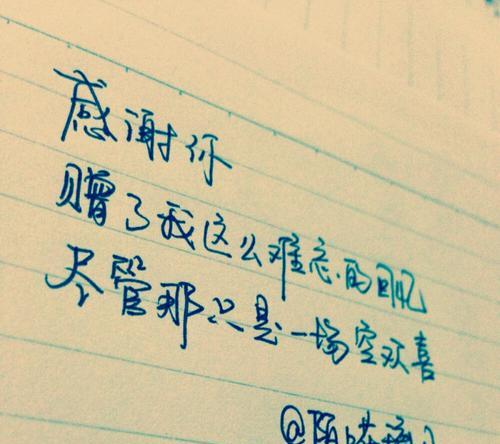 感谢你
赠了我这么难忘的回忆
尽管那只是一场空欢喜
@陌